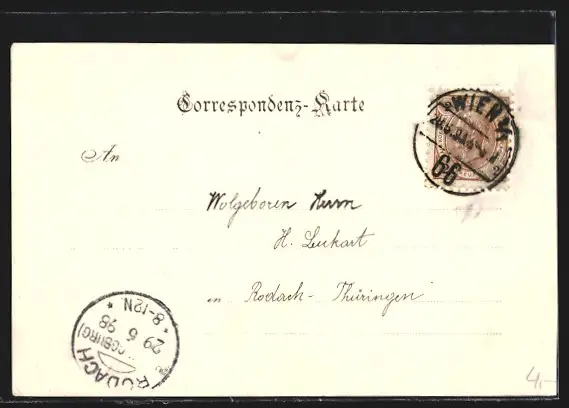 Correspondenz-Karte
WIEN
66
An
Wolgeboren Herrn
H. Leukart
in Rodach - Thüringen
RODACH
(COBURG)
29 6 98
* 8-12N. *
4.-